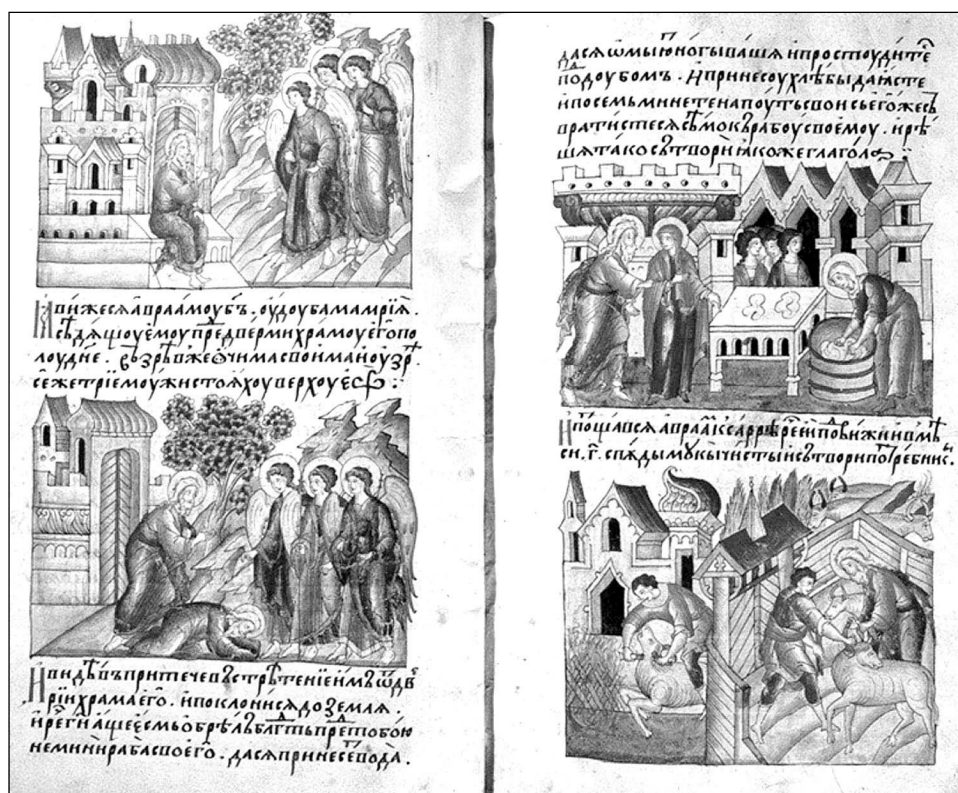 И вижесѧ авраамоу бъ. оу доуба мамрїѧ.
сѣдѧщоу емоу прⷣе двермї храмоу его по
лоудне. възрѣвже ѡчима своима и оузрѣ
се же трїе моужи стоѧхоу верхоу его :
И видѣвъ притече въ стрѣтенїе имъ ѿ две
рїи храма его. и поклонисѧ до землѧ.
и реⷱ ги аще есмь обрѣлъ блгⷣть преⷣ тобою
не мини раба своего. да сѧ принесе вода.
да сѧ ѡмыю ногы вашѧ и простоудитеⷭ
поⷣ доубомъ. И принесоу хлѣбы да ꙗсте
и по семь минете на поуть свои сьего же съ
вратистесѧ сѣмо къ рабоу своемоу. и рѣ
шѧ тако сътвори ꙗкоже глагола
И пощавсѧ авраⷨ к сарре реⷱ еи подвижи и вмѣ
си. г. спѧды моукы чисты и сътвори потребни